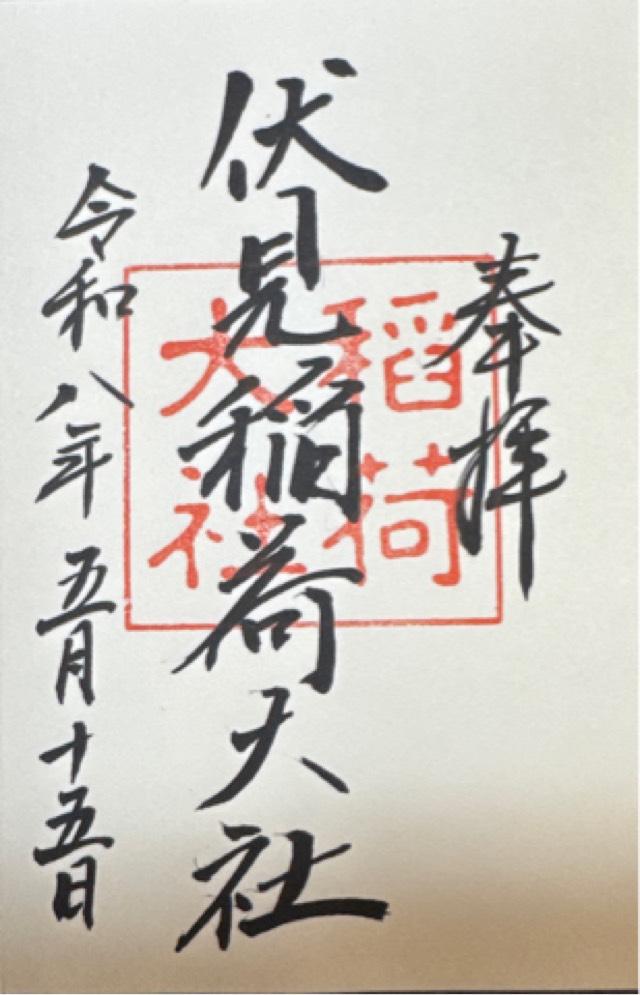 奉拝
伏見稲荷大社
稲荷
大社
令和八年五月十五日